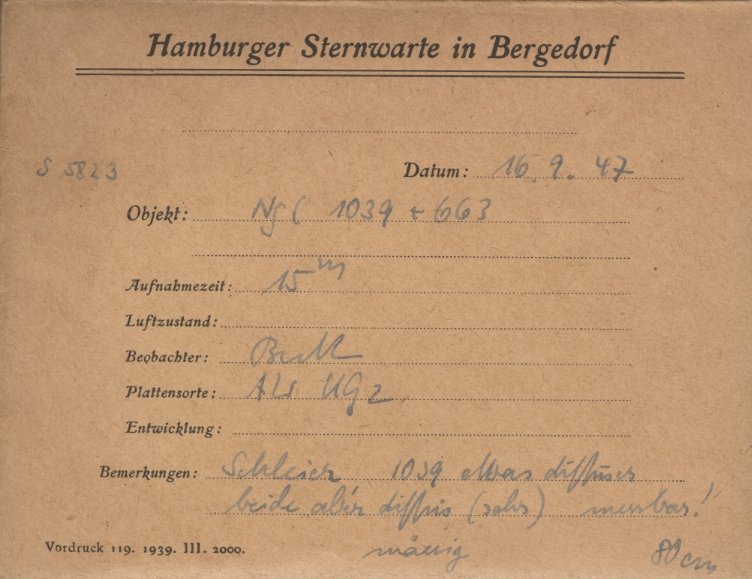 Hamburger Sternwarte in Bergedorf
S 5823
Datum: 16. 9. 47
Objekt: NGC 1039 + 663
Aufnahmezeit: 15 m
Luftzustand:
Beobachter:
Plattensorte: UG 2
Entwicklung:
Bemerkungen: Schleier 1039 etwas diffuser
beide aber diffus (sehr) messbar!
mässig
Vordruck 119. 1939. III. 2000.
80 cm